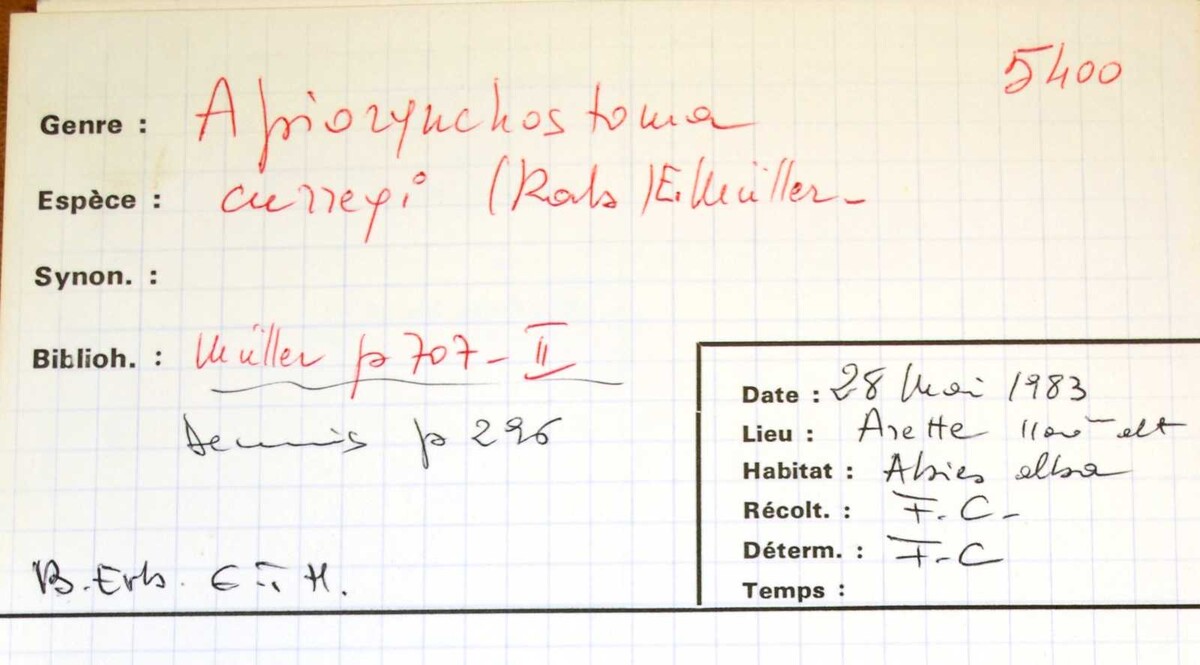 5400
Genre : Apiorynchostoma
Espèce : curreyi (Rab) E. Müller -
Synon. :
Biblioh. : Müller p 707 - II
Dennis p 296
Date : 28 Mai 1983
Lieu : Arette alt
Habitat : Abies alba
Récolt. : F. C -
Déterm. : F. C
Temps :
B. Erb. E.T.H.